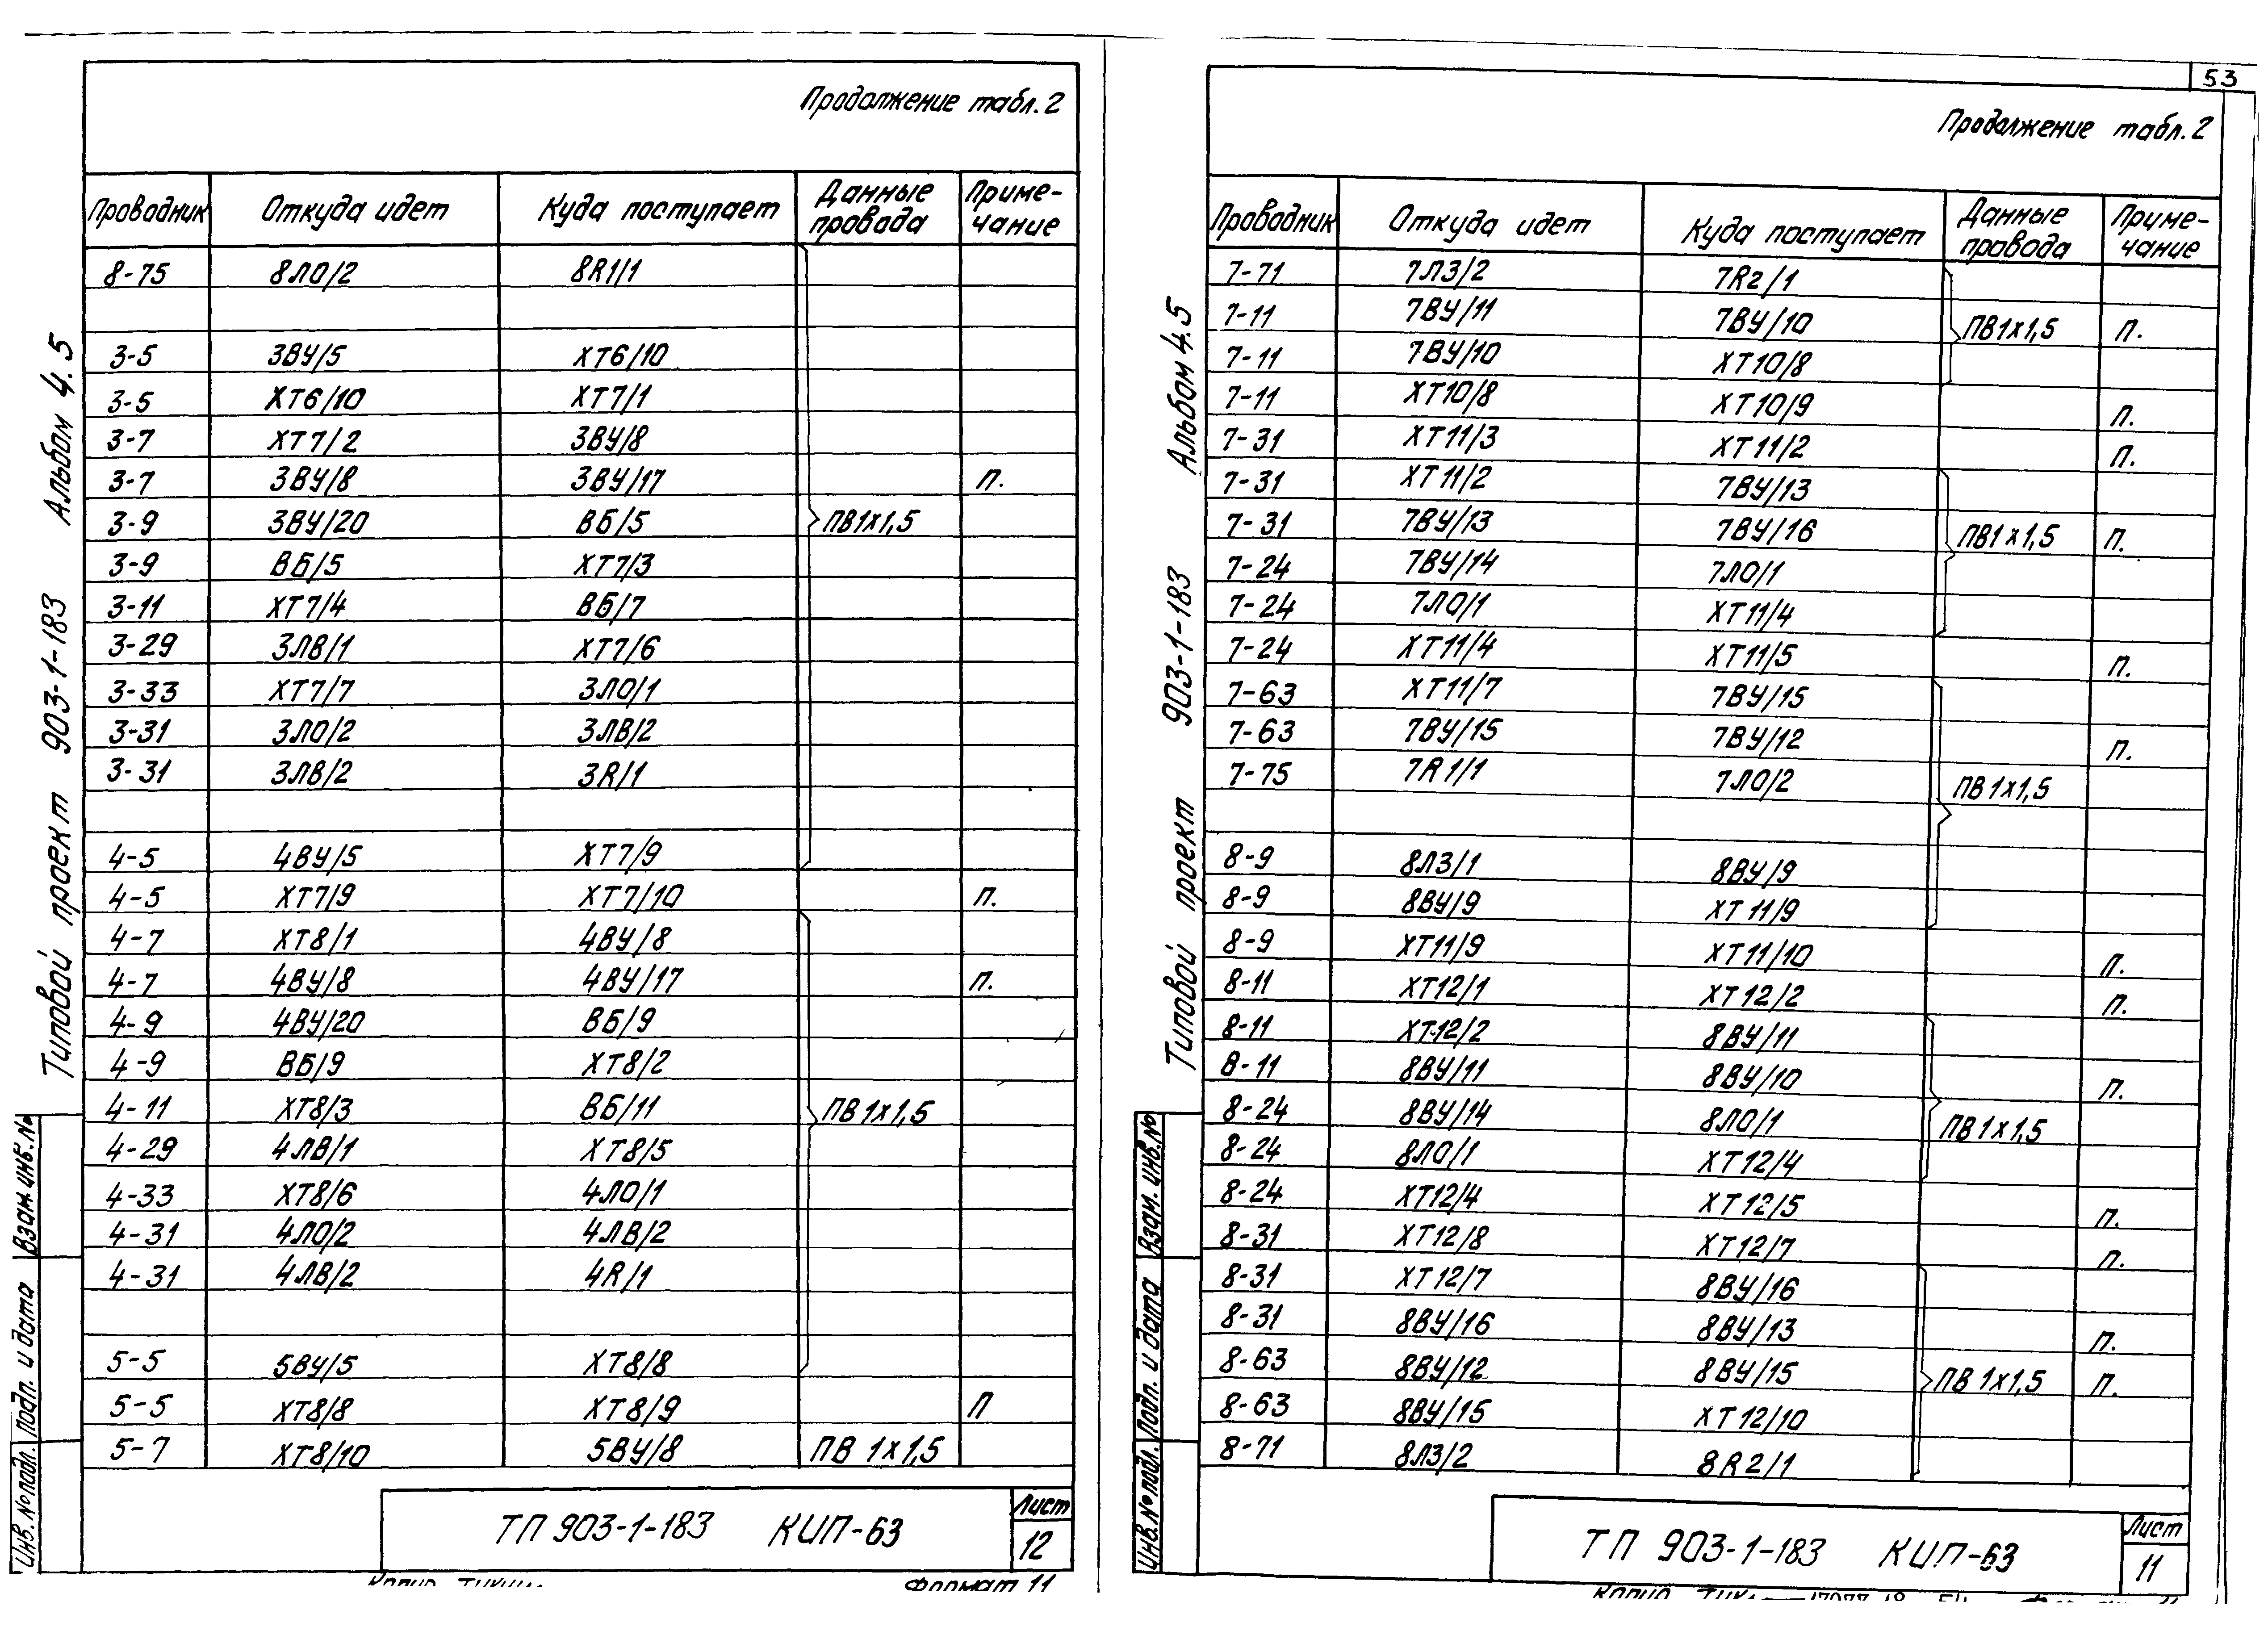 Продолжение табл. 2
Проводник Откуда идет Куда поступает Данные провода Приме-чание
8-75 8ЛО/2 8R1/1
3-5 3ВУ/5 ХТ6/10
3-5 ХТ6/10 ХТ7/1
3-7 ХТ7/2 3ВУ/8
3-7 3ВУ/8 3ВУ/17 П.
3-9 3ВУ/20 ВБ/5 ПВ1х1,5
3-9 ВБ/5 ХТ7/3
3-11 ХТ7/4 ВБ/7
3-29 3ЛВ/1 ХТ7/6
3-33 ХТ7/7 3ЛО/1
3-31 3ЛО/2 3ЛВ/2
3-31 3ЛВ/2 3R/1
4-5 4ВУ/5 ХТ7/9
4-5 ХТ7/9 ХТ7/10 П.
4-7 ХТ8/1 4ВУ/8
4-7 4ВУ/8 4ВУ/17 П.
4-9 4ВУ/20 ВБ/9
4-9 ВБ/9 ХТ8/2
4-11 ХТ8/3 ВБ/11 ПВ1х1,5
4-29 4ЛВ/1 ХТ8/5
4-33 ХТ8/6 4ЛО/1
4-31 4ЛО/2 4ЛВ/2
4-31 4ЛВ/2 4R/1
5-5 5ВУ/5 ХТ8/8
5-5 ХТ8/8 ХТ8/9 П
5-7 ХТ8/10 5ВУ/8 ПВ 1х1,5
ТП 903-1-183 КИП-63
Лист
12
Формат 11
Типовой проект 903-1-183 Альбом 4.5
Инв. № подл. Подп. и дата Взам. инв. №
53
Продолжение табл. 2
Проводник Откуда идет Куда поступает Данные провода Приме-чание
7-71 7ЛЗ/2 7R2/1
7-11 7ВУ/11 7ВУ/10 ПВ1х1,5 П.
7-11 7ВУ/10 ХТ10/8
7-11 ХТ10/8 ХТ10/9 П.
7-31 ХТ11/3 ХТ11/2 П.
7-31 ХТ11/2 7ВУ/13
7-31 7ВУ/13 7ВУ/16 ПВ1х1,5 П.
7-24 7ВУ/14 7ЛО/1
7-24 7ЛО/1 ХТ11/4
7-24 ХТ11/4 ХТ11/5 П.
7-63 ХТ11/7 7ВУ/15
7-63 7ВУ/15 7ВУ/12 П.
7-75 7R1/1 7ЛО/2 ПВ1х1,5
8-9 8ЛЗ/1 8ВУ/9
8-9 8ВУ/9 ХТ11/9
8-9 ХТ11/9 ХТ11/10 П.
8-11 ХТ12/1 ХТ12/2 П.
8-11 ХТ12/2 8ВУ/11
8-11 8ВУ/11 8ВУ/10 П.
8-24 8ВУ/14 8ЛО/1 ПВ1х1,5
8-24 8ЛО/1 ХТ12/4
8-24 ХТ12/4 ХТ12/5 П.
8-31 ХТ12/8 ХТ12/7 П.
8-31 ХТ12/7 8ВУ/16
8-31 8ВУ/16 8ВУ/13 П.
8-63 8ВУ/12 8ВУ/15 ПВ 1х1,5 П.
8-63 8ВУ/15 ХТ12/10
8-71 8ЛЗ/2 8R2/1
ТП 903-1-183 КИП-63
Лист
11
Типовой проект 903-1-183 Альбом 4.5
Инв. № подл. Подп. и дата Взам. инв. №